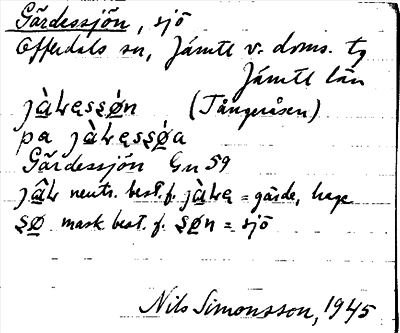 Gärdessjön, sjö
Offerdals sn, Jämtl v. doms. tg
Jämtl län
jàʟęssø̀n (Tångeråsen)
pa jàʟęssø̀a
Gärdessjön Gn 59
jâʟ neutr. best. f. jàʟę = gärde, hage
sø mask. best. f. søn = sjö
Nils Simonsson, 1945